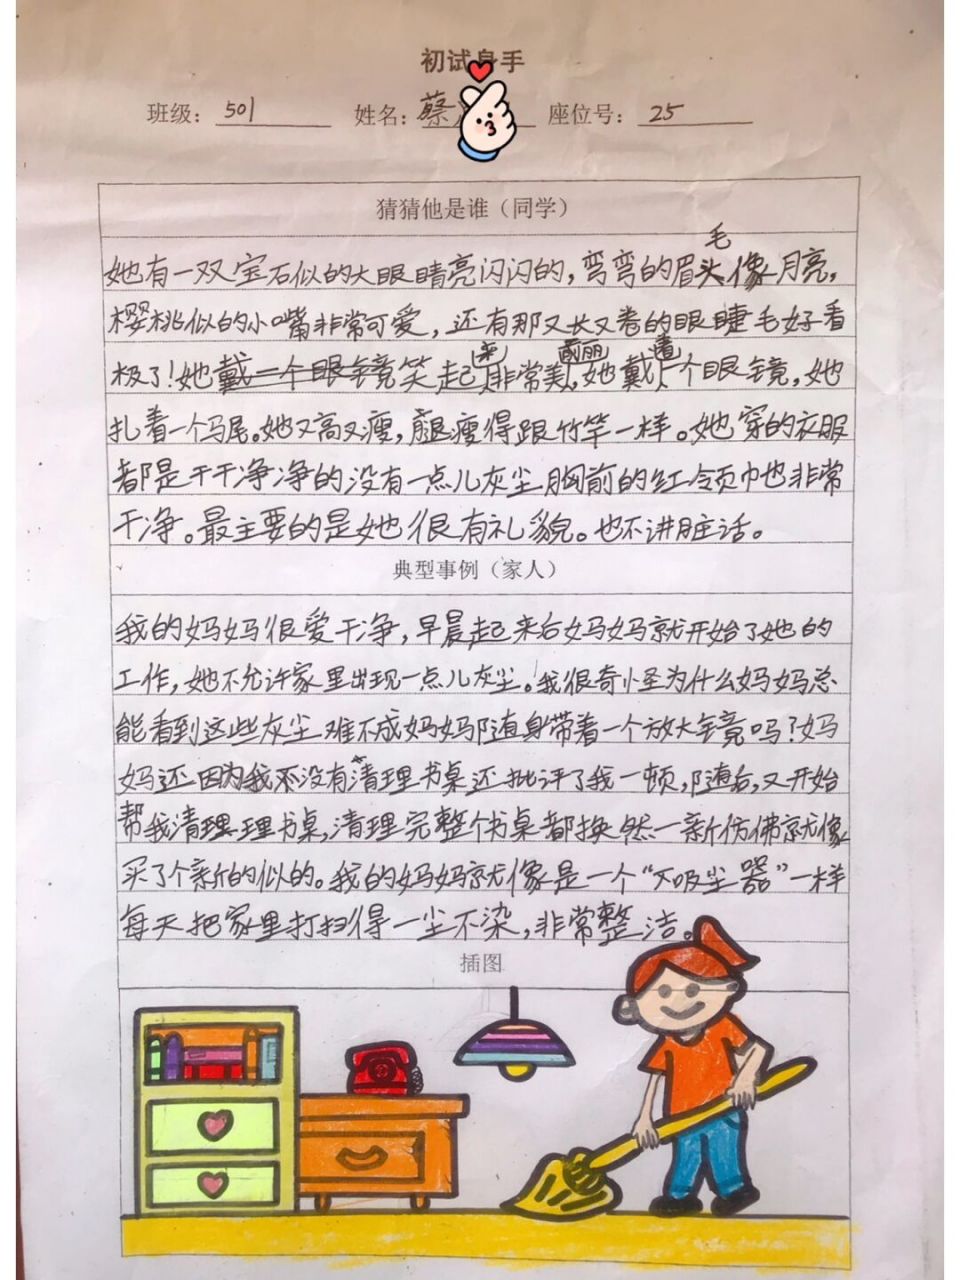 初试身手
班级：501 姓名：蔡 座位号：25
猜猜他是谁（同学）
她有一双宝石似的大眼睛亮闪闪的，弯弯的眉毛像月亮，
樱桃似的小嘴非常可爱，还有那又长又卷的眼睫毛好看
极了！她笑起来非常美丽，她戴着一个眼镜，她
扎着一个马尾。她又高又瘦，腿瘦得跟竹竿一样。她穿的衣服
都是干干净净的没有一点儿灰尘胸前的红领巾也非常
干净。最主要的是她很有礼貌。也不讲脏话。
典型事例（家人）
我的妈妈很爱干净，早晨起来后妈妈就开始了她的
工作，她不允许家里出现一点儿灰尘。我很奇怪为什么妈妈总
能看到这些灰尘难不成妈妈随身带着一个放大镜吗？妈
妈还因为我没有清理书桌还批评了我一顿，随后，又开始
帮我清理理书桌，清理完整个书桌都换然一新仿佛就像
买了个新的似的。我的妈妈就像是一个“大吸尘器”一样
每天把家里打扫得一尘不染，非常整洁。
插图